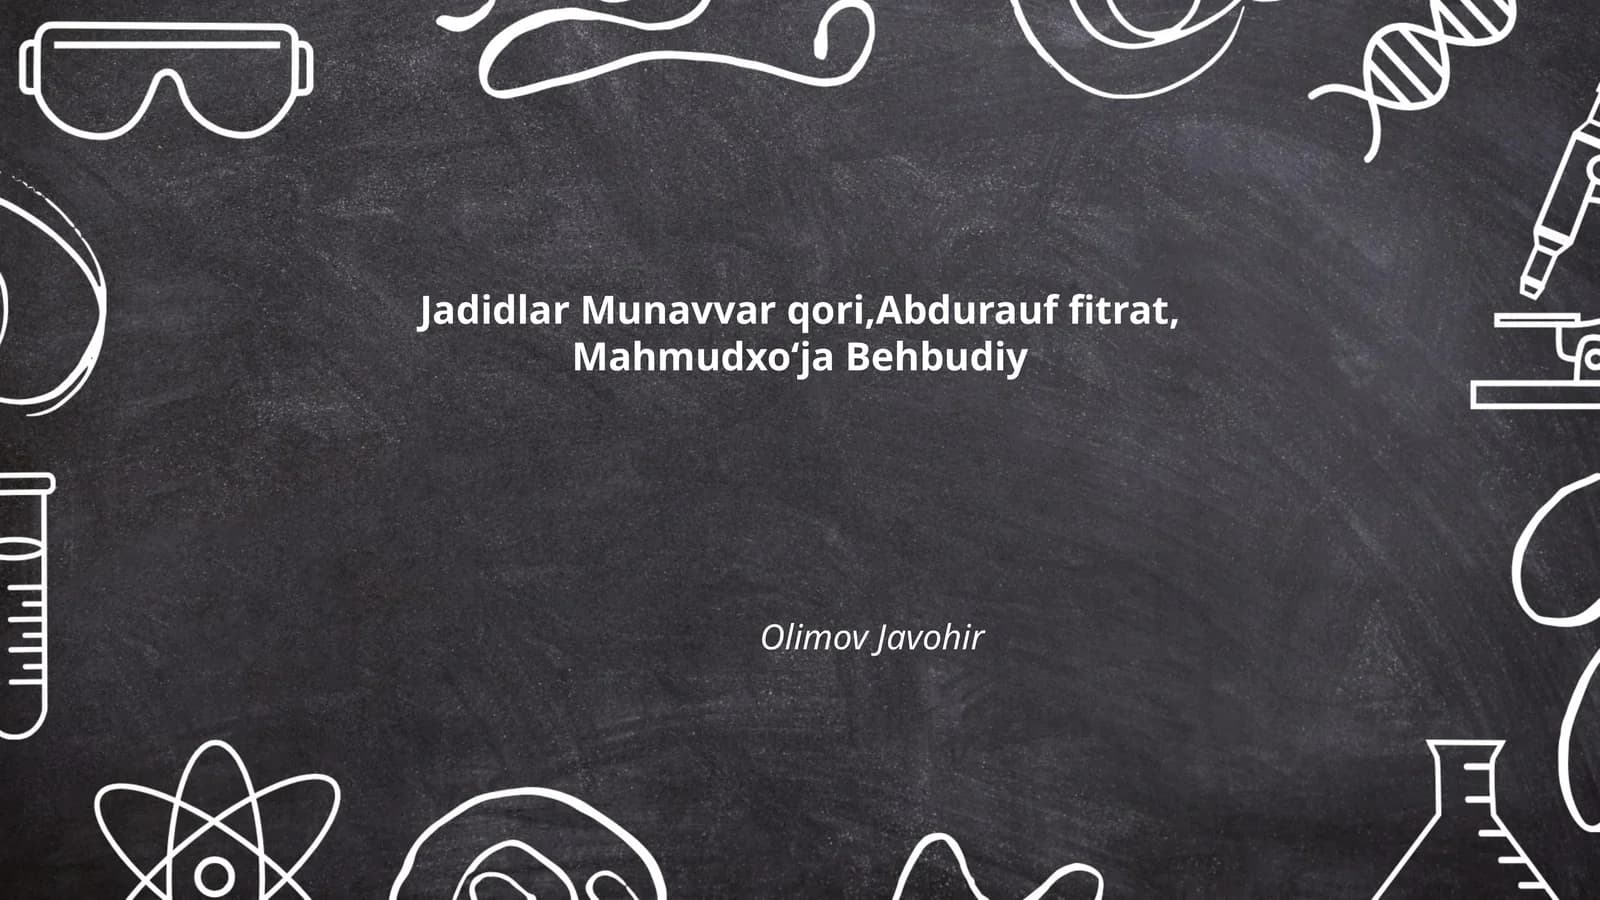 Jadidlar Munavvar qori,Abdurauf fitrat,
Mahmudxo‘ja Behbudiy
Olimov Javohir